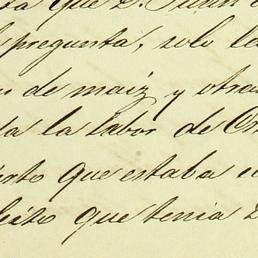 que D. Juan
pregunta, solo les
de maiz y otra
la labor de
que estaba e
que tenia